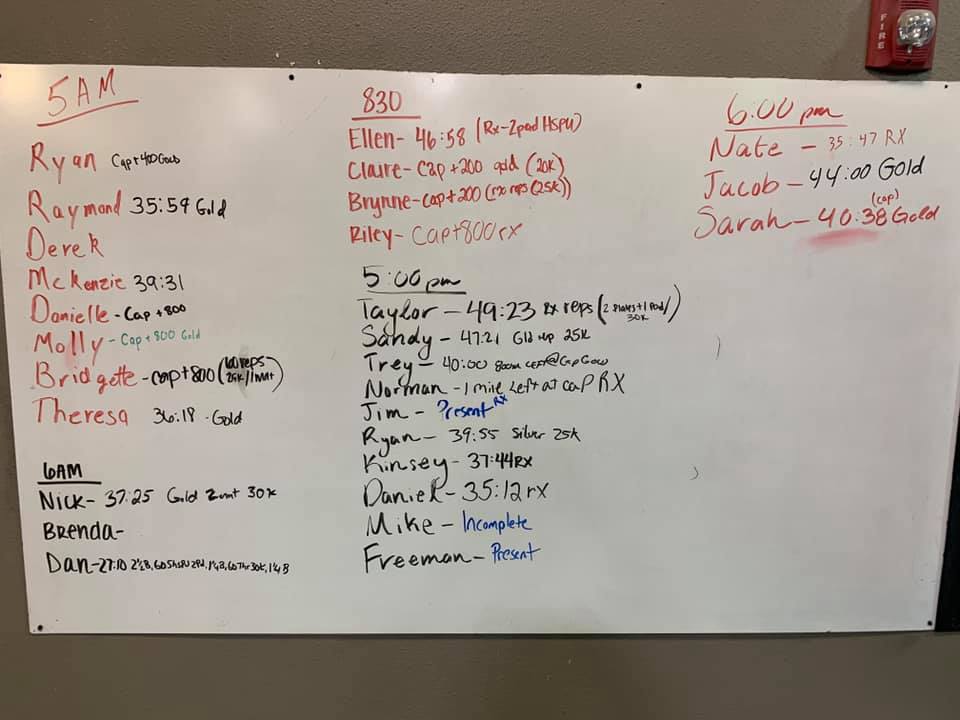 5AM
Ryan Cap+400 Gold
Raymond 35:59 Gold
Derek
McKenzie 39:31
Danielle - Cap +800
Molly - Cap +800 Gold
Bridgette - cap+800 (
Theresa 36:18 - Gold
6AM
Nick- 37:25 Gold 30K
Brenda-
Dan-27:10
830
Ellen- 46:58 (Rx-2pad HSPU)
Claire- Cap +200 gold (20K)
Brynne- cap+200 (rx reps (25K))
Riley- Cap+800 rx
5:00 pm
Taylor - 49:23 Rx reps (2 plates+1 Pad/
30K)
Sandy - 47:21 Gld rep 25K
Trey - 40:00 800m left @ Cap Gold
Norman - 1 mile left at cap RX
Jim - Present RX
Ryan - 39:55 Silver 25K
Kinsey - 37:44 RX
Daniel - 35:12 rx
Mike - Incomplete
Freeman - Present
6:00 pm
Nate - 35:47 RX
Jacob - 44:00 Gold
(cap)
Sarah - 40:38 Gold
FIRE